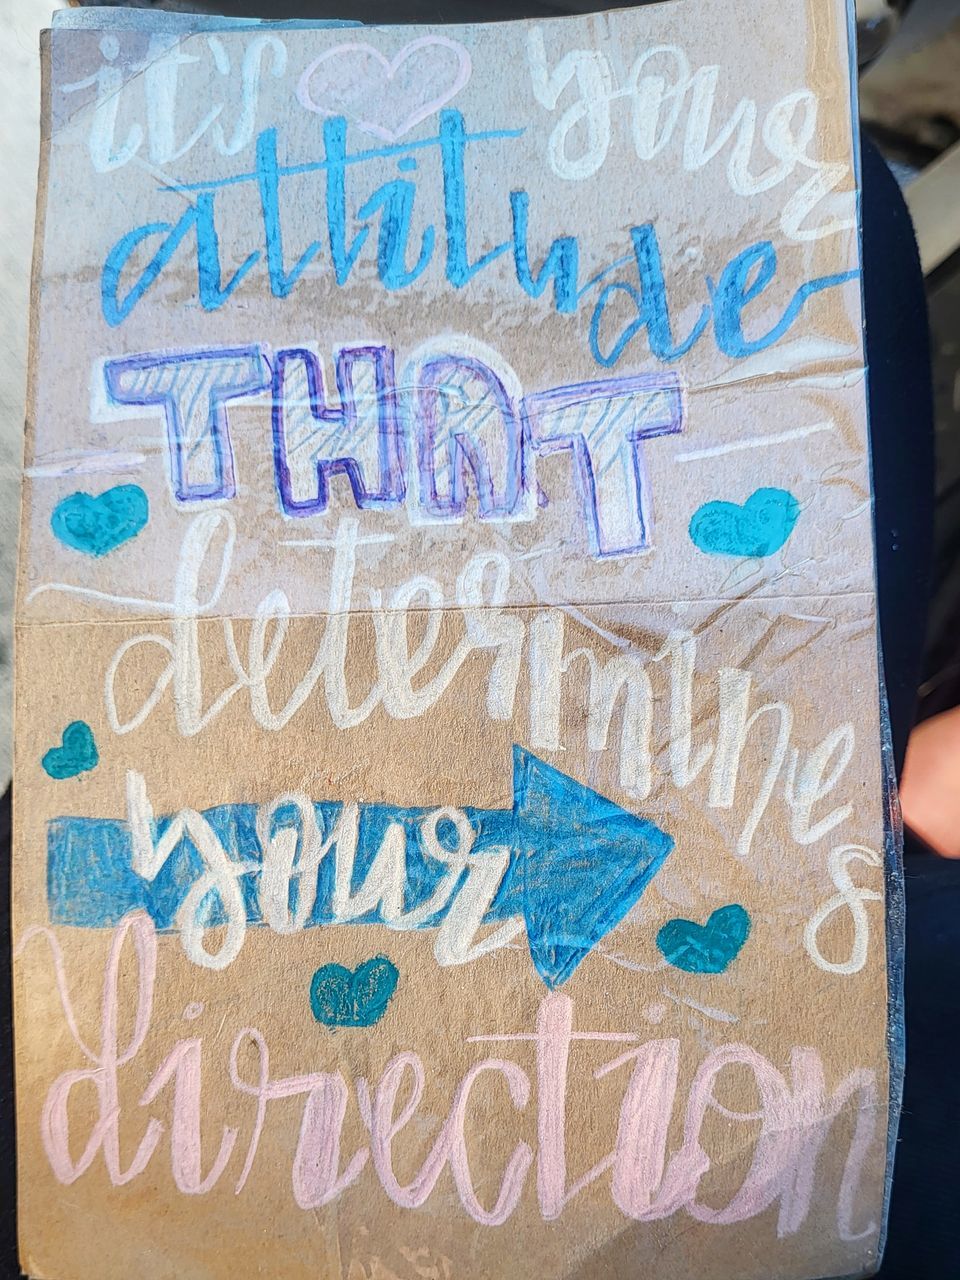 it's your
attitude
THAT
determines
your
direction